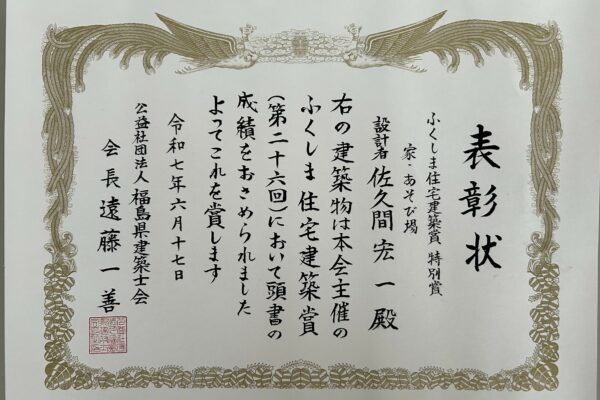 表彰状
ふくしま住宅建築賞 特別賞
家・あそび場
設計者 佐久間宏一殿
右の建築物は本会主催の
ふくしま住宅建築賞
(第二十六回)において頭書の
成績をおさめられました
よってこれを賞します
令和七年六月十七日
公益社団法人 福島県建築士会
会長 遠藤一善